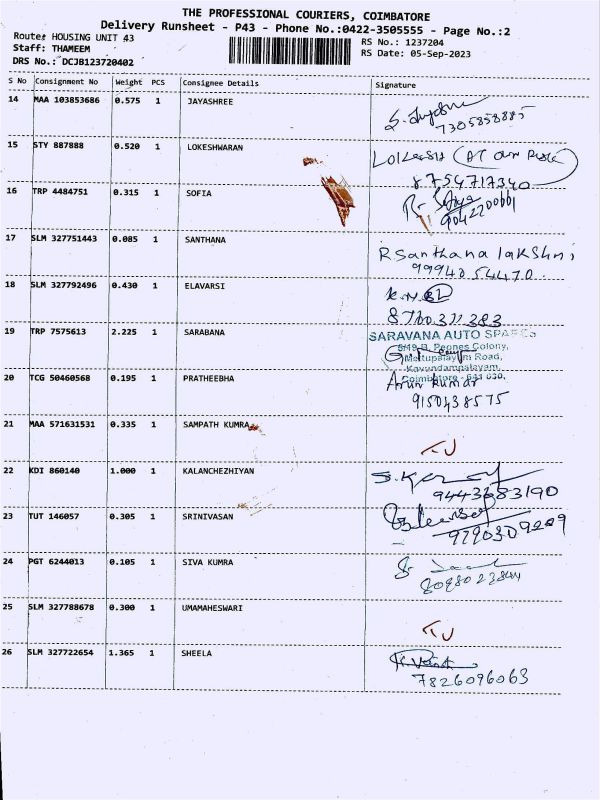 THE PROFESSIONAL COURIERS, COIMBATORE
Delivery Runsheet - P43 - Phone No.:0422-3505555 - Page No.:2
Route: HOUSING UNIT 43
RS No.: 1237204
Staff: THAMEEM
RS Date: 05-Sep-2023
DRS No.: DCJB123720402
S No Consignment No Weight PCS Consignee Details Signature
14 MAA 103853686 0.575 1 JAYASHREE
7305858885
15 STY 887888 0.520 1 LOKESHWARAN
8754717340
16 TRP 4484751 0.315 1 SOFIA
9042200661
17 SLM 327751443 0.085 1 SANTHANA R Santhana lakshmi
9994054470
18 SLM 327792496 0.430 1 ELAVARSI
8760311383
19 TRP 7575613 2.225 1 SARABANA SARAVANA AUTO SPARES
Mettupalayam Road,
Kavundampalayam,
Coimbatore - 641 030.
20 TCG 50460568 0.195 1 PRATHEEBHA Arun Kumar
9150438575
21 MAA 571631531 0.335 1 SAMPATH KUMRA
22 KDI 860140 1.000 1 KALANCHEZHIYAN
9443683190
23 TUT 146057 0.305 1 SRINIVASAN
9790309209
24 PGT 6244013 0.105 1 SIVA KUMRA
25 SLM 327788678 0.300 1 UMAMAHESWARI
26 SLM 327722654 1.365 1 SHEELA
7826096063